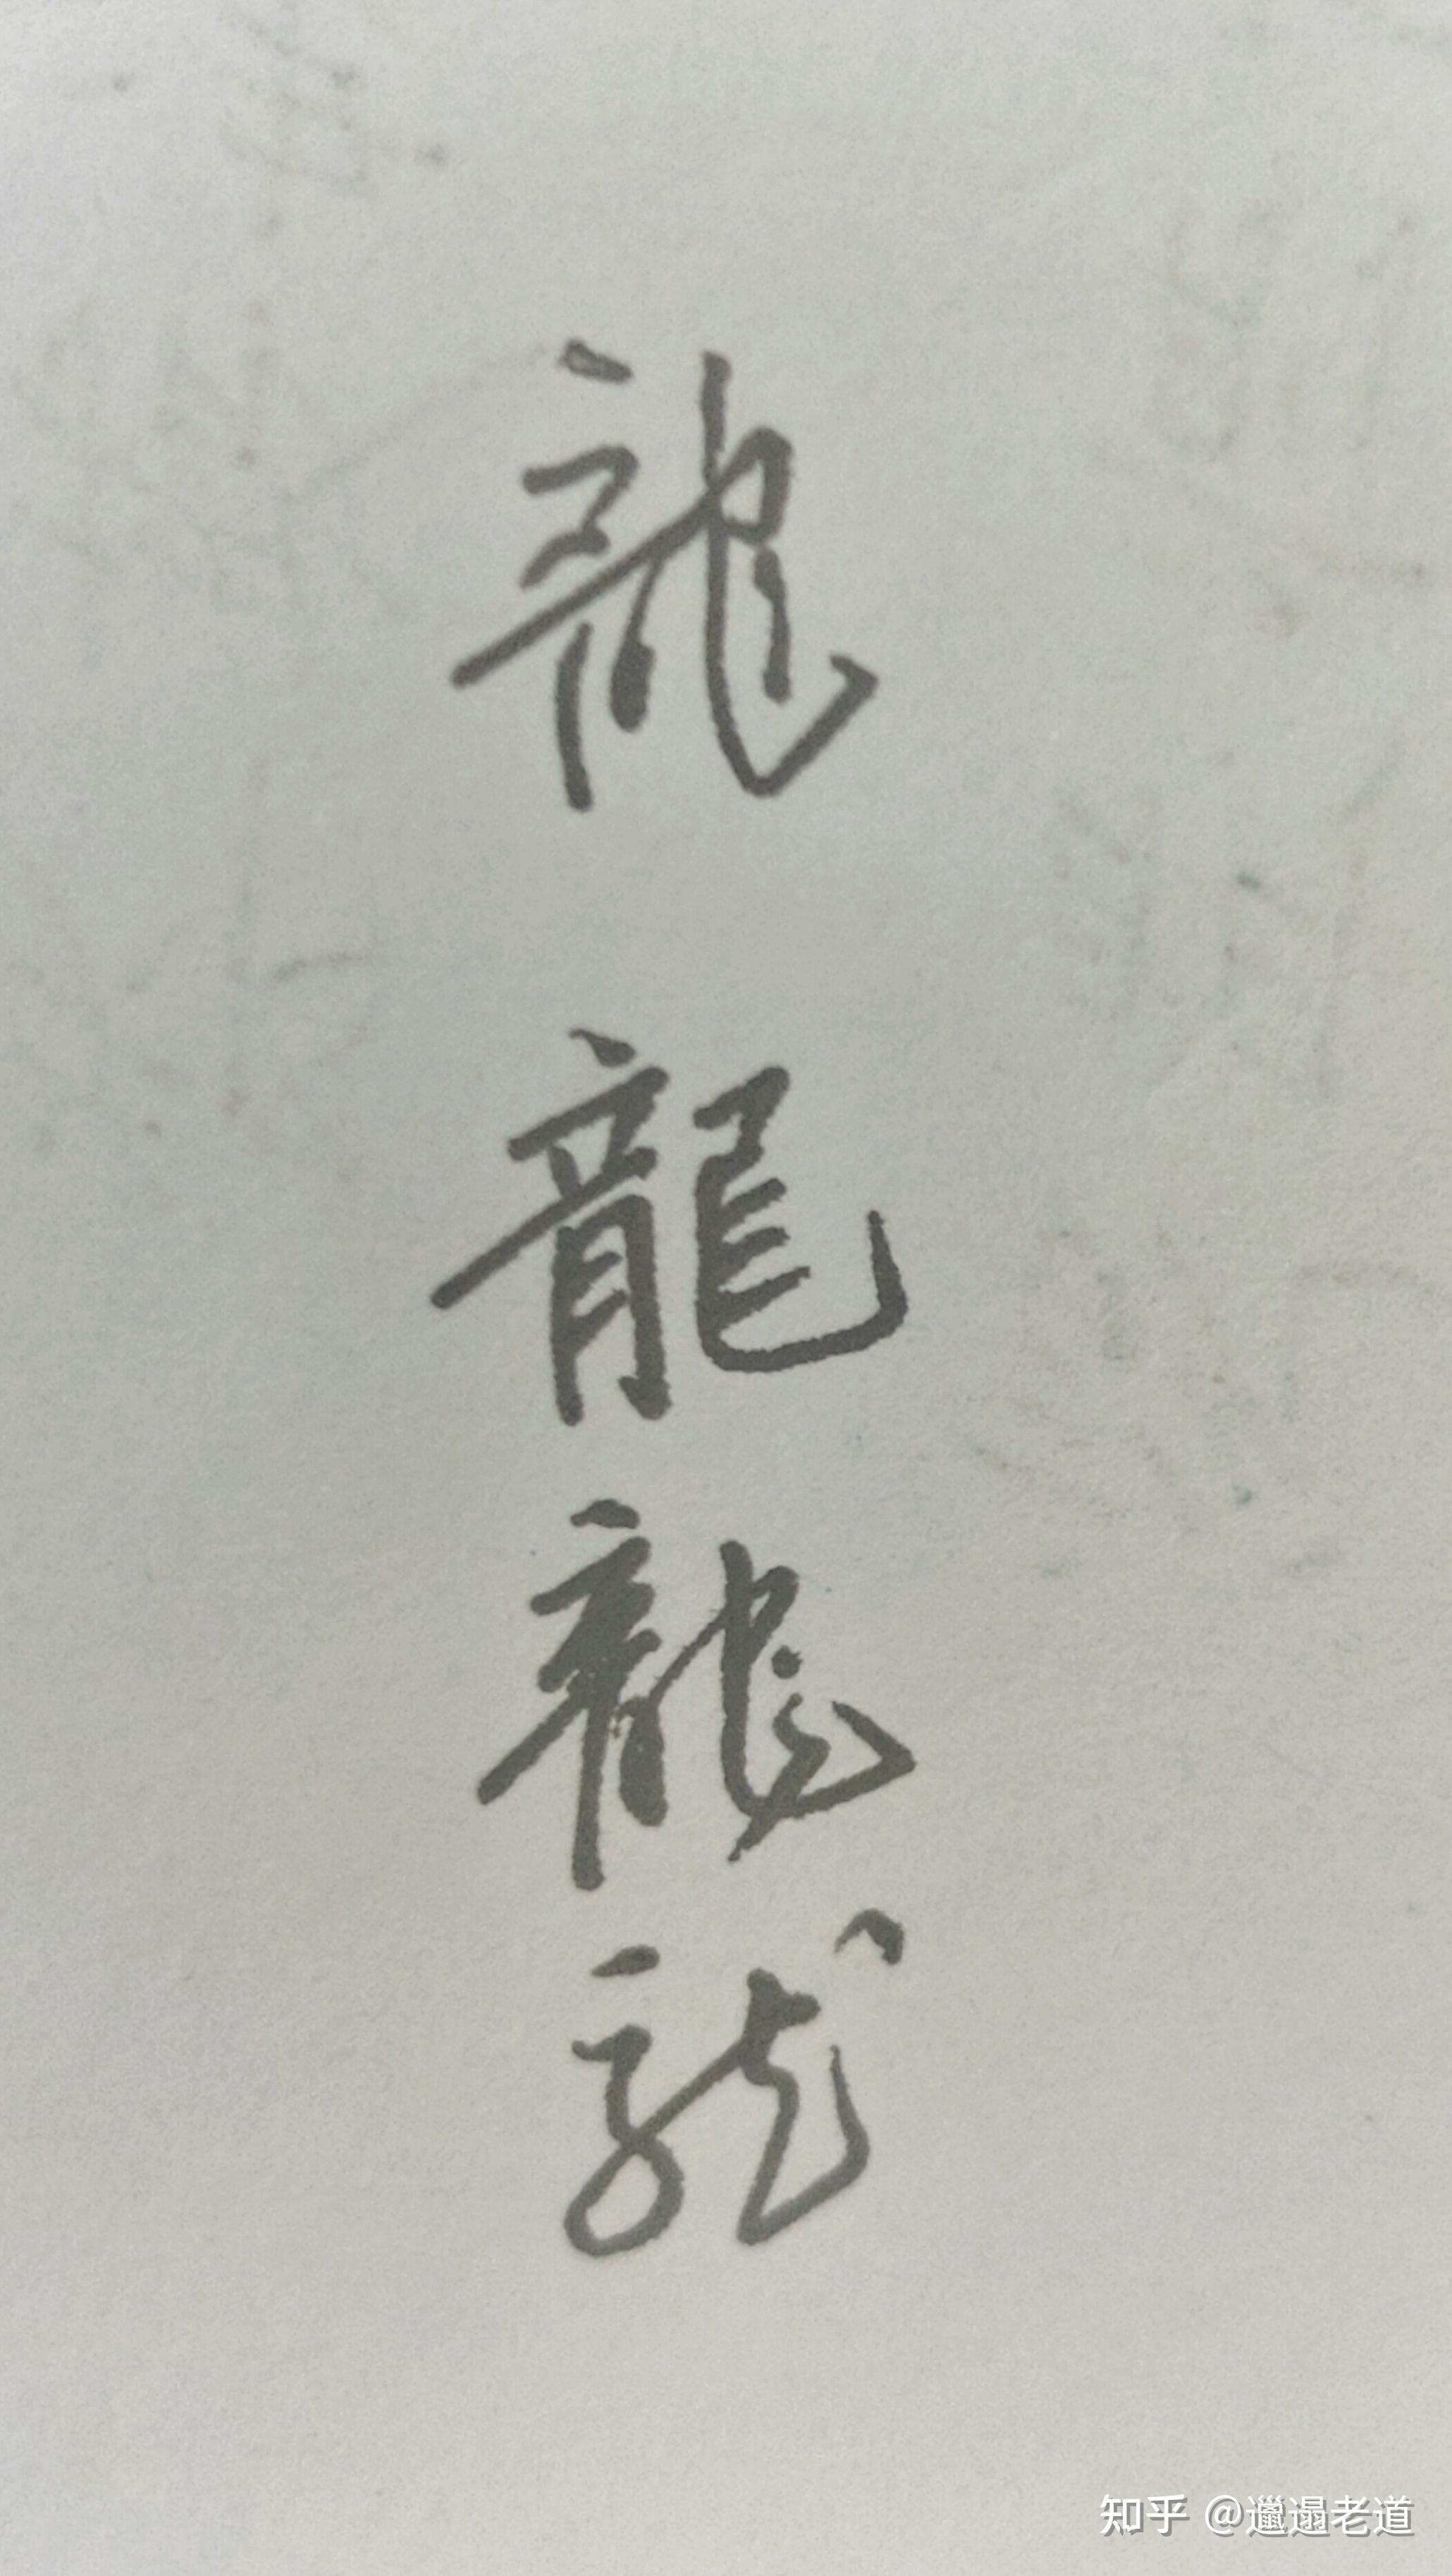 龍
龍
龍
龍
知乎 @邋遢老道